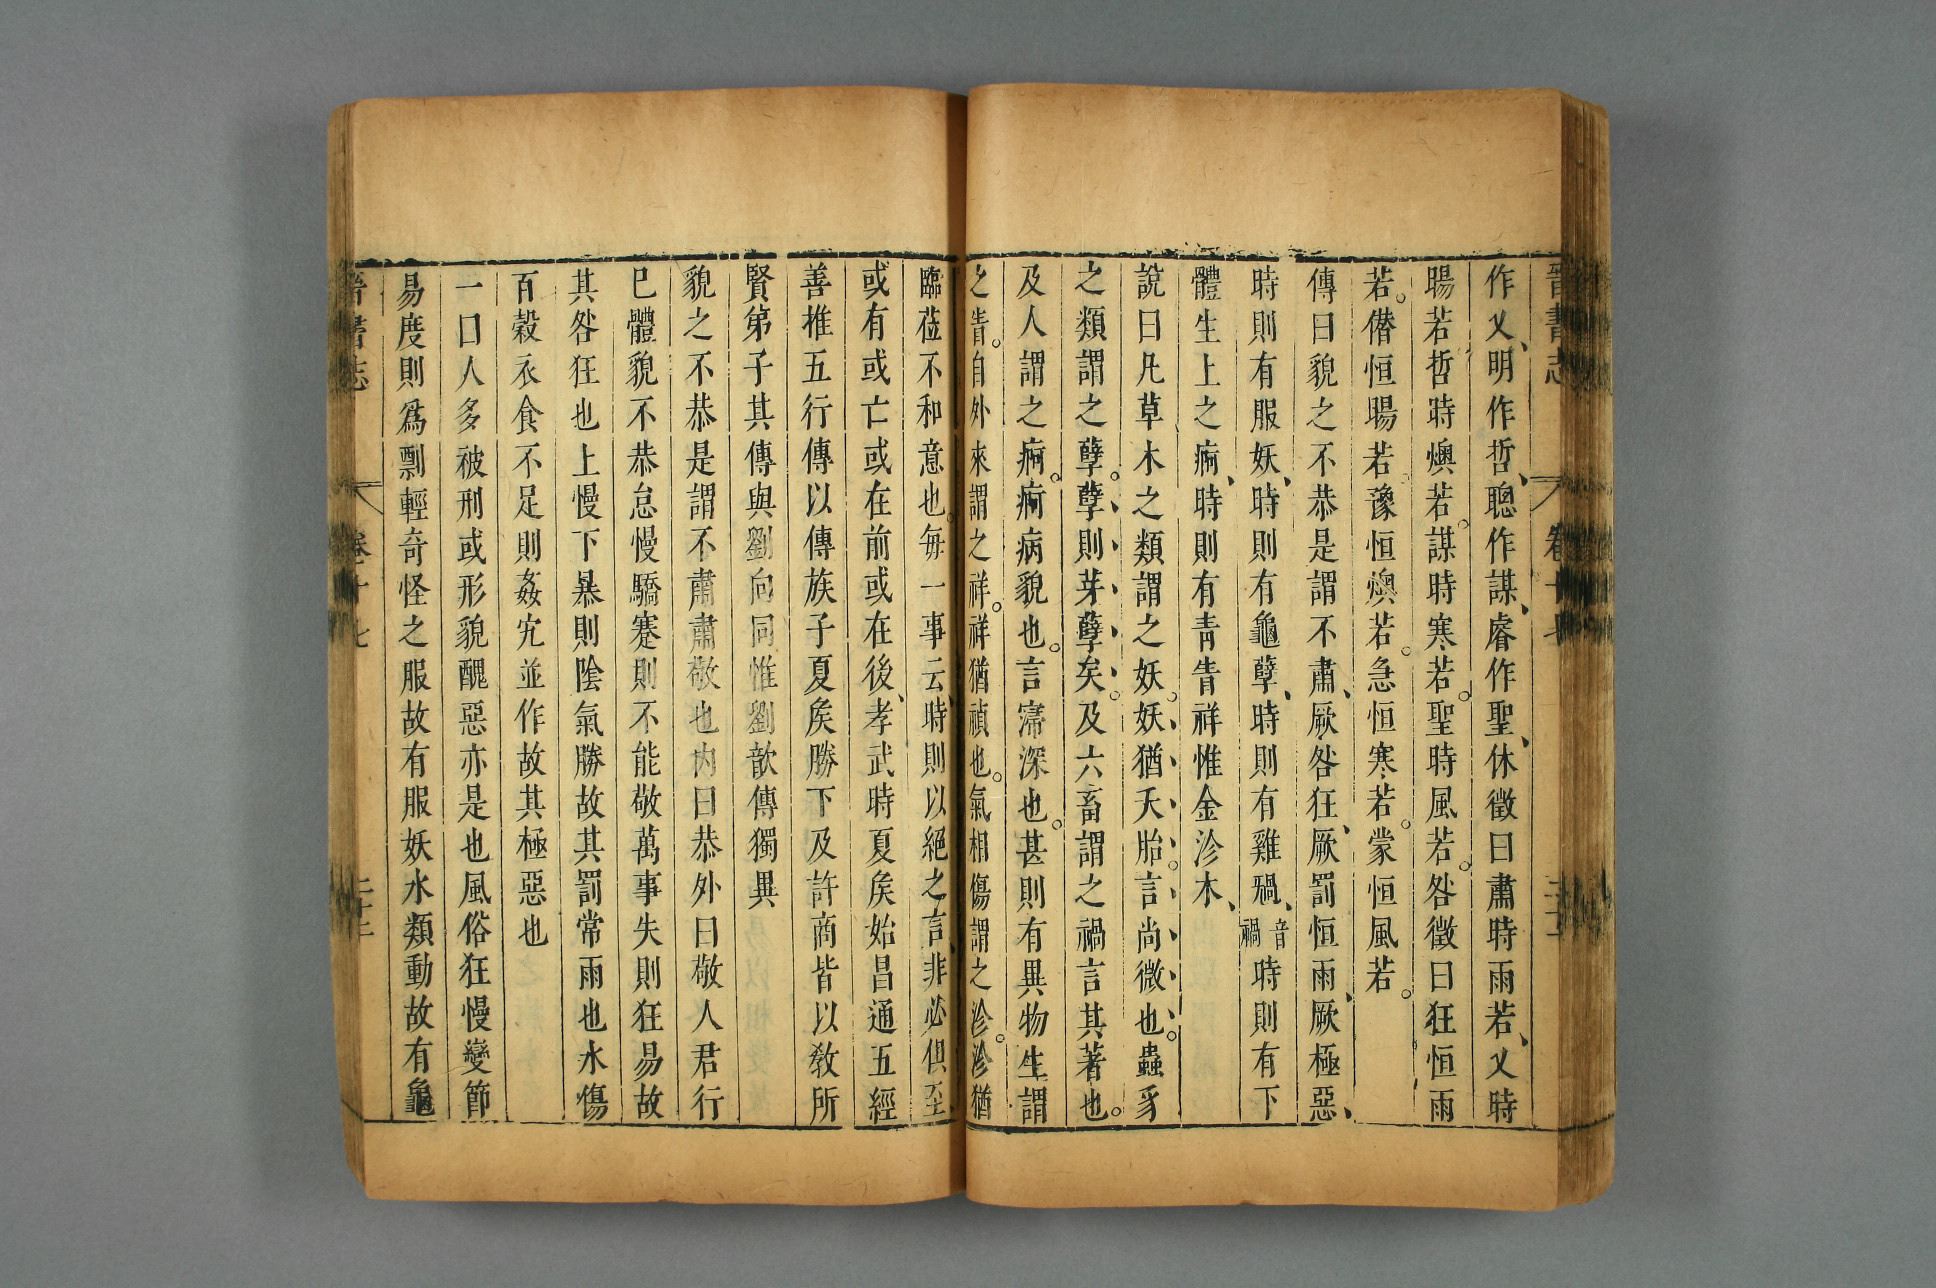 晉書志 卷十七
作乂、明作哲、聰作謀、睿作聖、休徵曰肅時雨若、乂時
暘若哲時燠若。謀時寒若。聖時風若。咎徵曰狂恒雨
若。僭恒暘若。豫恒燠若。急恒寒若。蒙恒風若。
傳曰貌之不恭是謂不肅、厥咎狂、厥罰恒雨、厥極惡、
時則有服妖、時則有龜孽、時則有雞禍、音禍時則有下
體生上之痾、時則有青眚青祥惟金沴木、
說曰凡草木之類謂之妖。妖猶夭胎。言尚微也。蟲豸
之類謂之孽。孽則芽孽矣。及六畜謂之禍言其著也。
及人謂之痾。痾病貌也。言寖深也。甚則有異物生謂
之眚。自外來謂之祥。祥猶禎也。氣相傷謂之沴。沴猶
臨莅不和意也。每一事云、時則以絕之言、非必俱至、
或有或亡或在前或在後、孝武時夏矦始昌通五經
善推五行傳以傳族子夏矦勝下及許商皆以敎所
賢第子其傳與劉向同惟劉歆傳獨異
貌之不恭是謂不肅肅敬也內曰恭外曰敬人君行
巳體貌不恭怠慢驕蹇則不能敬萬事失則狂易故
其咎狂也上慢下暴則陰氣勝故其罰常雨也水傷
百穀衣食不足則姦宄並作故其極惡也
一曰人多被刑或形貌醜惡亦是也風俗狂慢變節
易度則爲剽輕奇怪之服故有服妖水類動故有龜
晉書志 卷十七 二十二